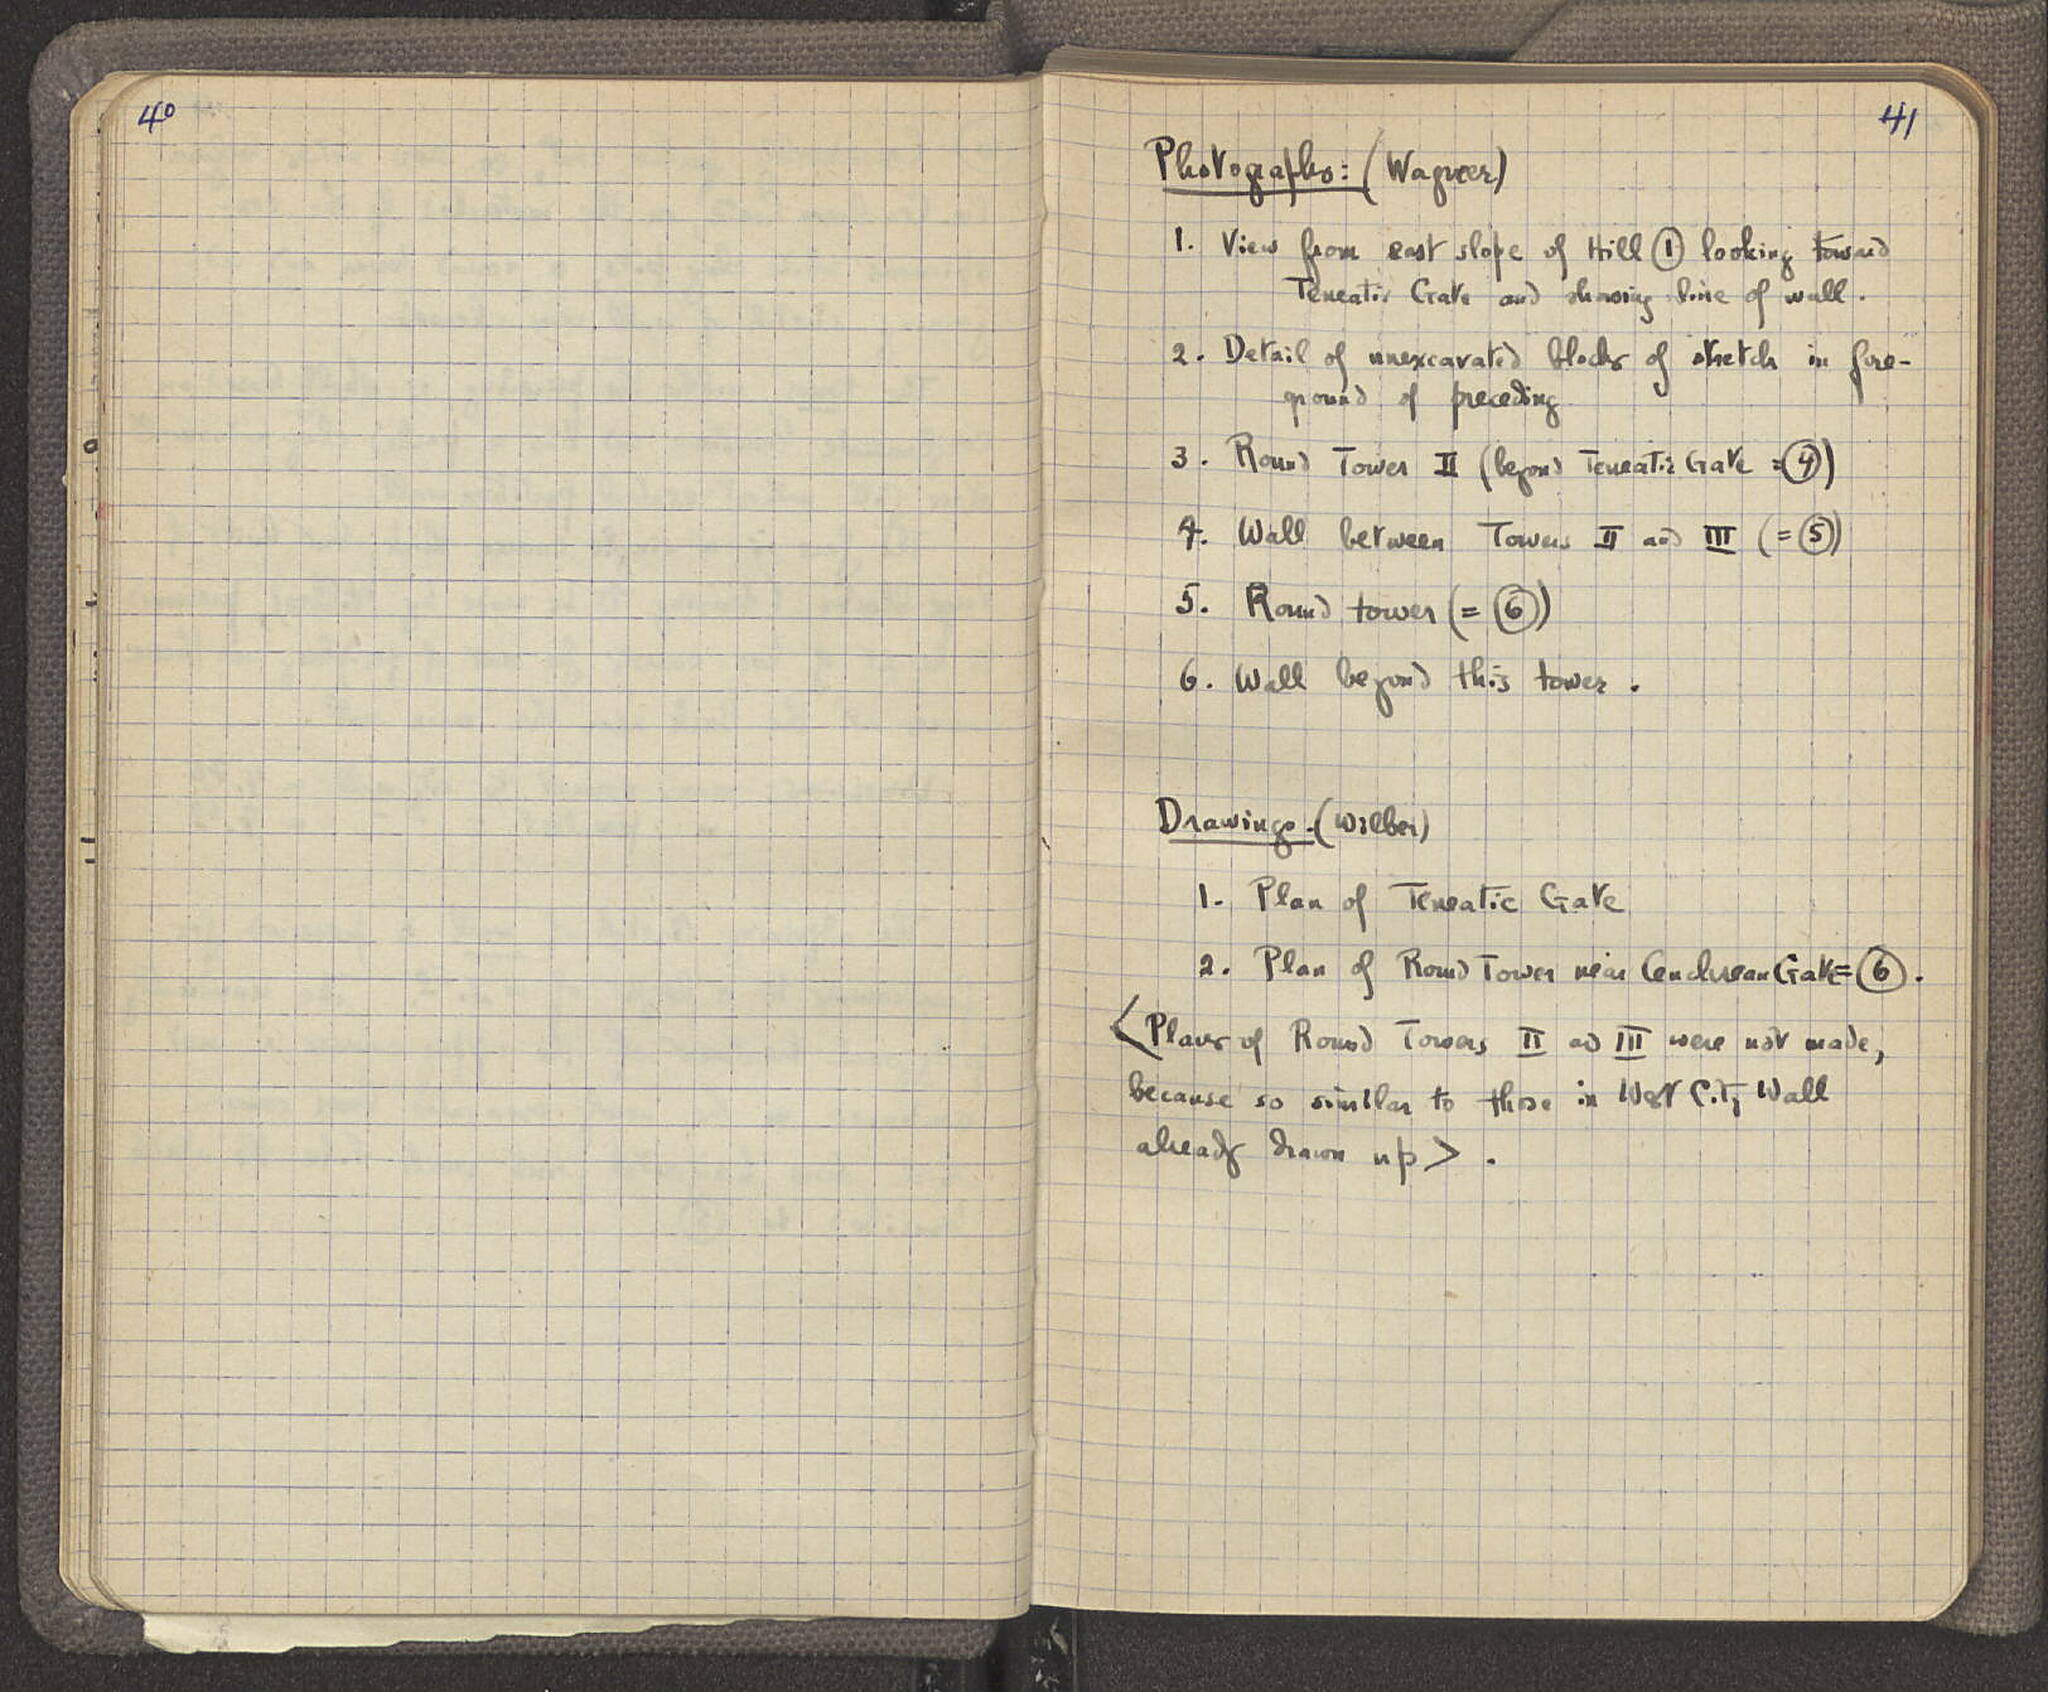 40
41
Photographs: (Wagner)
1. View from east slope of Hill ① looking toward
Teneatic Gate and showing line of wall.
2. Detail of unexcavated blocks of stretch in fore-
ground of preceding
3. Round Tower II (beyond Teneatic Gate = ④)
4. Wall between Towers II and III (= ⑤)
5. Round tower (= ⑥)
6. Wall beyond this tower.
Drawings. (Wilber)
1. Plan of Teneatic Gate
2. Plan of Round Tower near Cenchrean Gate = ⑥.
<Plans of Round Towers II and III were not made,
because so similar to those in West City Wall
already drawn up>.